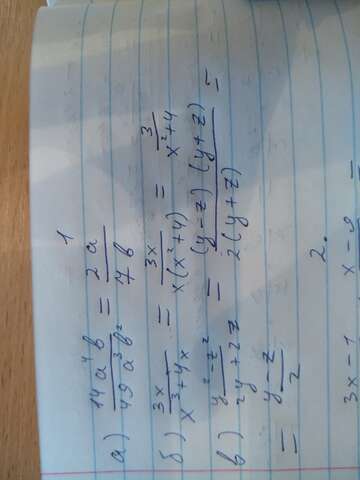 1
а) 14a⁴b / 49a³b² = 2a / 7b
б) 3x / x³+4x = 3x / x(x²+4) = 3 / x²+4
в) y²-z² / 2y+2z = (y-z)(y+z) / 2(y+z) =
= y-z / 2
2.
3x-1